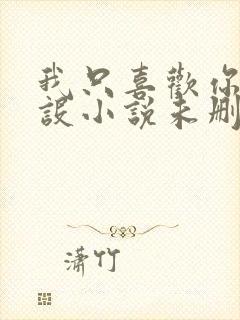 我只喜歡你
設小說未刪
瀟竹